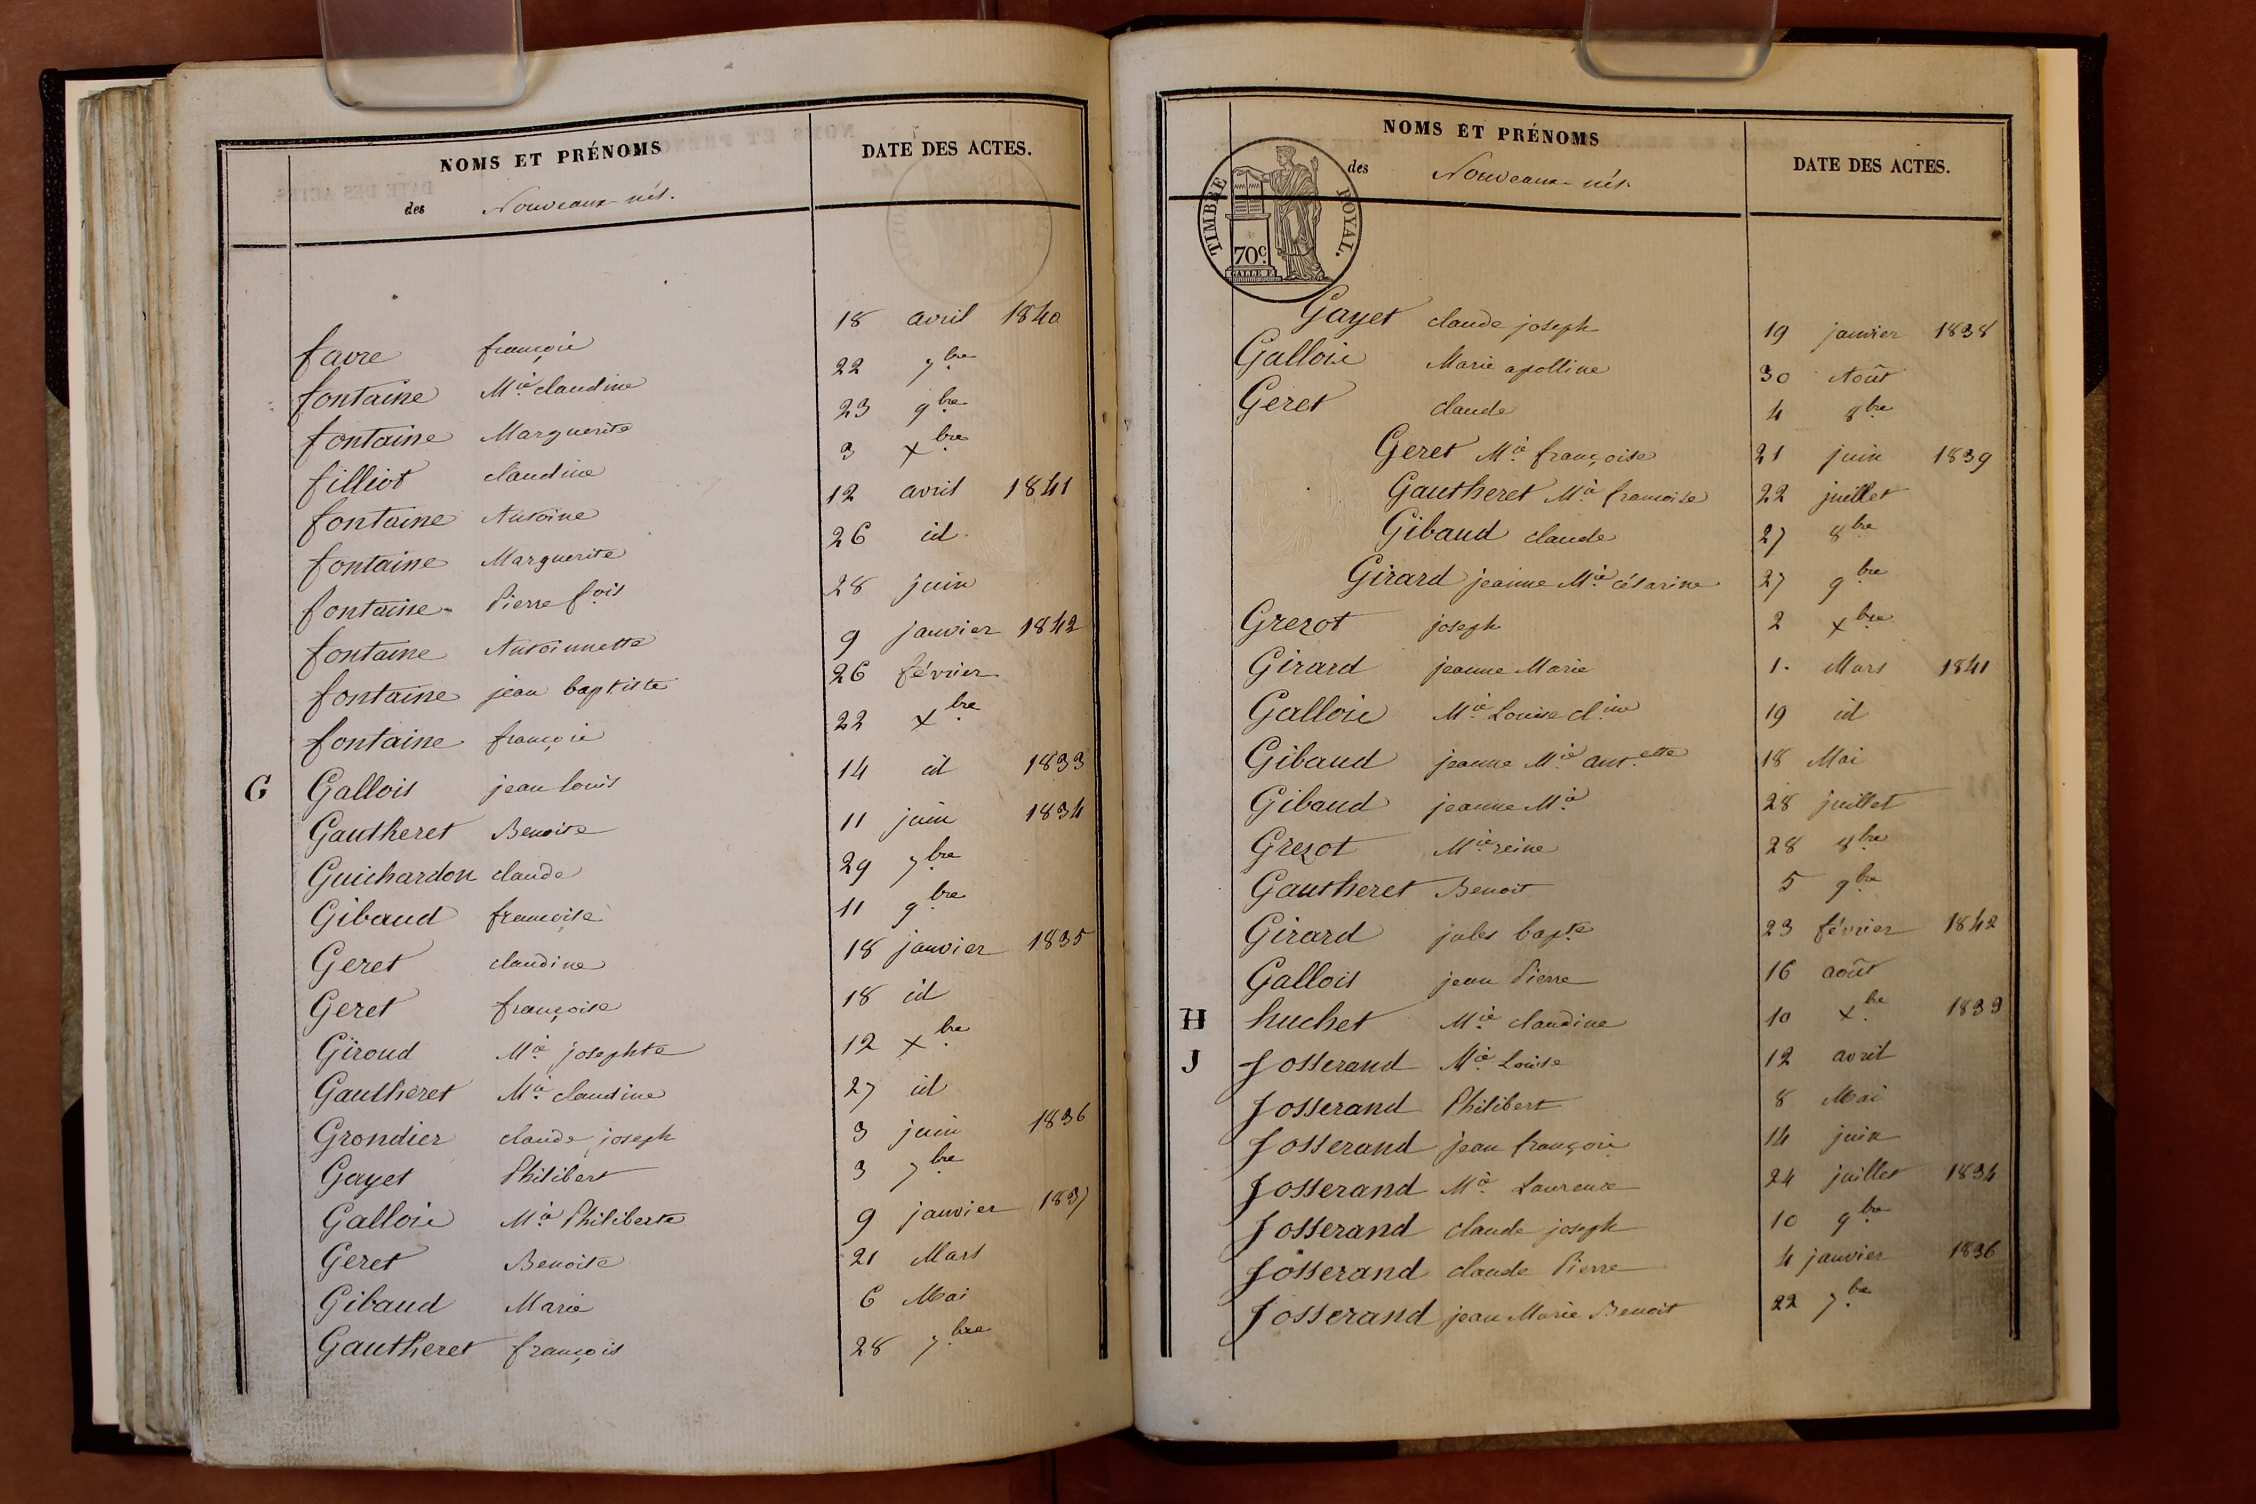 NOMS ET PRÉNOMS
DATE DES ACTES.
des Nouveaux-nés.
favre françois 18 avril 1840
fontaine Mie claudine 22 7bre
fontaine Marguerite 23 9bre
filliot claudine 3 xbre
fontaine Antoine 12 avril 1841
fontaine Marguerite 26 id
fontaine Pierre fois 28 juin
fontaine Antoinnette 9 janvier 1842
fontaine jean baptiste 26 février
fontaine françois 22 xbre
G Gallois jean louis 14 id 1833
Gautheret Benoite 11 juin 1834
Guichardon claude 29 7bre
Gibaud françoise 11 9bre
Geret claudine 18 janvier 1835
Geret françoise 18 id
Giroud Mie josephte 12 xbre
Gautheret Mie claudine 27 id
Grondier claude joseph 3 juin 1836
Gayet Philibert 3 7bre
Gallois Mie Philiberte 9 janvier 1837
Geret Benoite 21 Mars
Gibaud Marie 6 Mai
Gautheret françois 28 7bre
NOMS ET PRÉNOMS
DATE DES ACTES.
des Nouveaux-nés.
TIMBRE ROYAL.
70c.
Gayet claude joseph 19 janvier 1838
Gallois Marie apolline 30 Août
Geret claude 4 8bre
Geret Mie françoise 21 juin 1839
Gautheret Mie francoise 22 juillet
Gibaud claude 27 8bre
Girard jeanne Mie césarine 27 9bre
Grezot joseph 2 xbre
Girard jeanne Marie 1. Mars 1841
Gallois Mie Louise cl.ine 19 id
Gibaud jeanne Mie ant.ette 18 Mai
Gibaud jeanne Mie 28 juillet
Grezot Mie reine 28 8bre
Gautheret Benoit 5 9bre
Girard jules bapte 23 février 1842
Gallois jean Pierre 16 août
H huchet Mie claudine 10 xbre 1839
J Josserand Mie Louise 12 avril
Josserand Philibert 8 Mai
Josserand jean françois 14 juin
Josserand Mie Laurence 24 juillet 1834
Josserand claude joseph 10 9bre
Josserand claude Pierre 4 janvier 1836
Josserand jean Marie Benoit 22 7bre